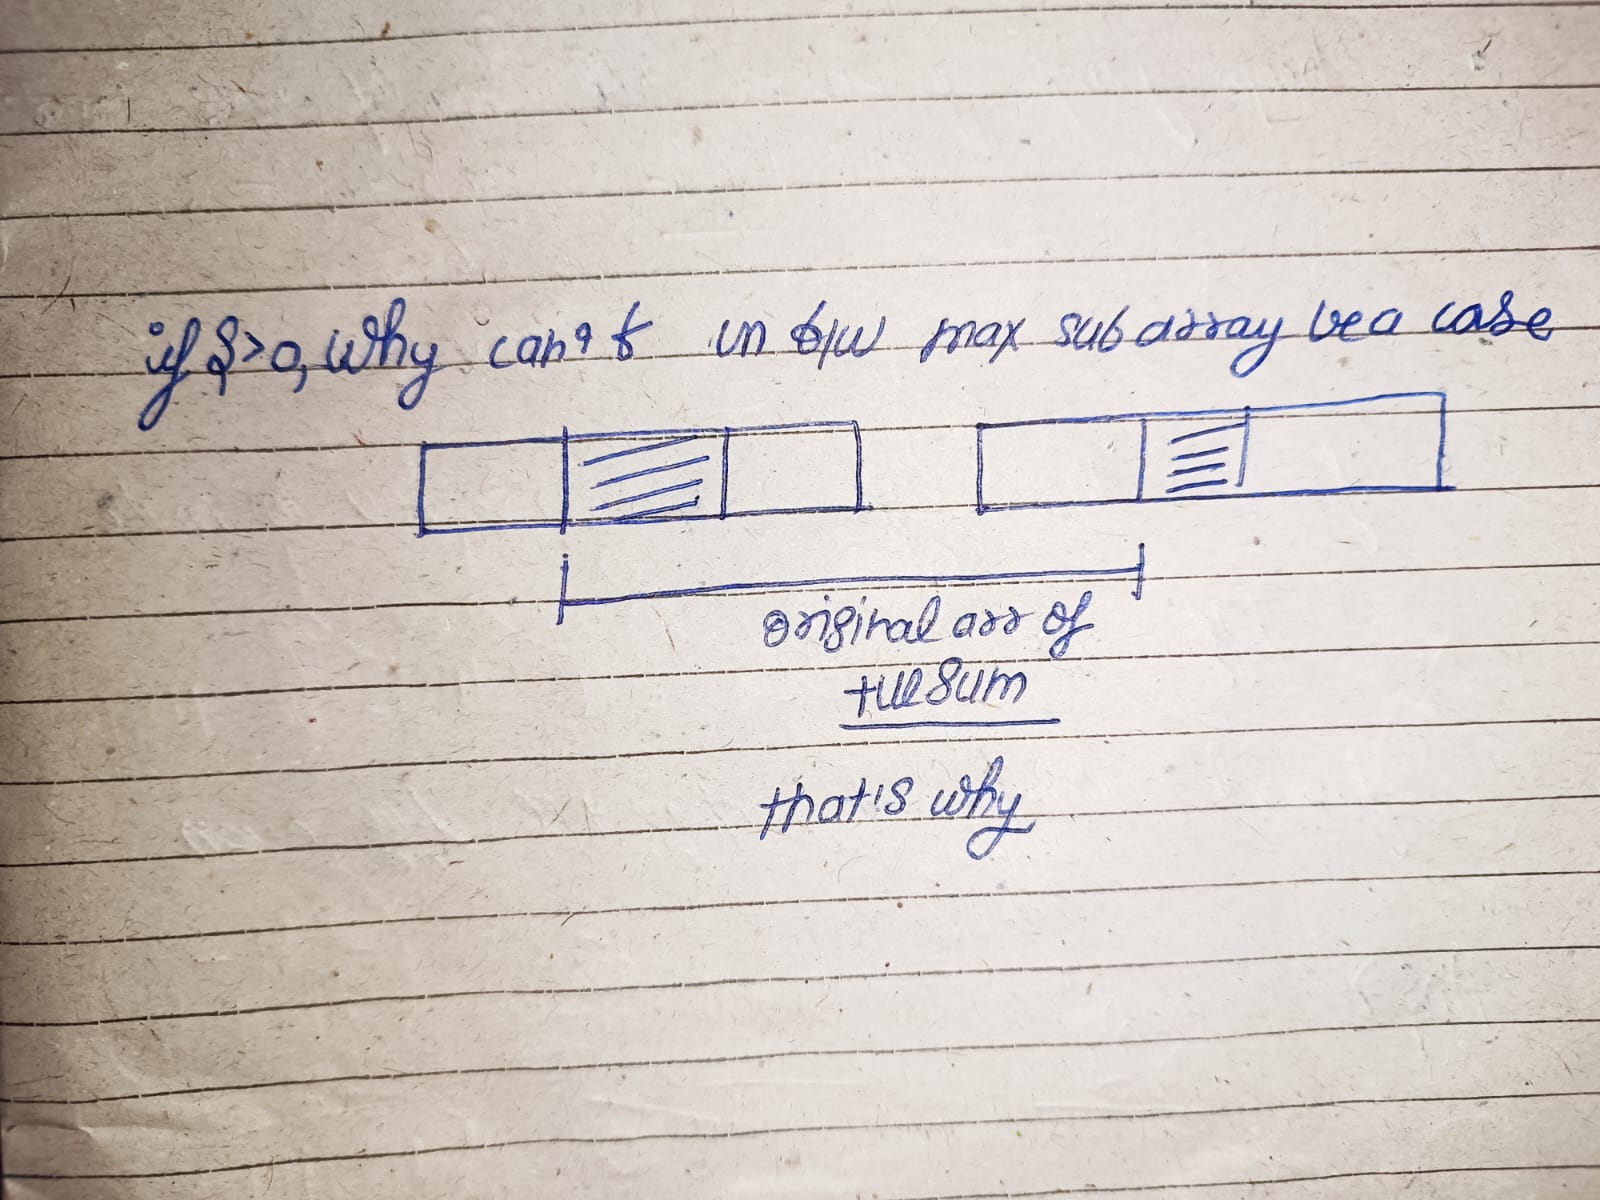 if S>0, why can't in b/w max subarray be a case
original arr of
+ve sum
that's why